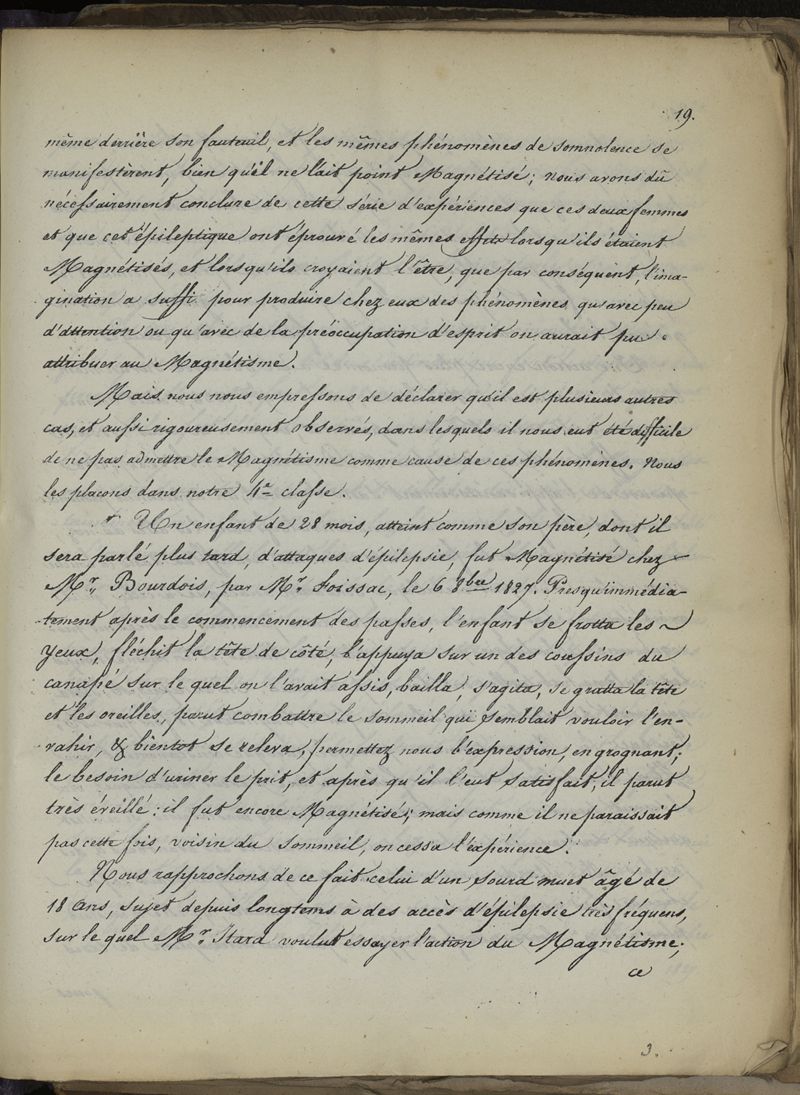 19.
même derrière son fauteuil, et les mêmes phénomènes de somnolence se
manifestèrent, bien qu'il ne l'ait point Magnétisé; nous avons dû
nécéssairement conclure de cette série d'expériences que ces deux femmes
et que cet épileptique ont éprouvé les mêmes effets lorsqu'ils étaient
Magnétisés, et lorsqu'ils croyaient l'être, que par conséquent, l'ima-
gination a suffi pour produire chez eux des phénomènes qu'avec peu
d'attention ou qu'avec de la préoccupation d'esprit on aurait pu
attribuer au Magnétisme.
Mais nous nous empressons de déclarer qu'il est plusieurs autres
cas, et aussi rigoureusement observés, dans lesquels il nous eut été difficile
de ne pas admettre le Magnétisme comme cause de ces phénomènes. Nous
les placons dans notre 4e classe.
Un enfant de 28 mois, atteint comme son père, dont il
sera parlé plus tard, d'attaques d'épilepsie, fut Magnétisé chez
Mr. Bourdois, par Mr. Foissac, le 6 8bre 1827. Presqu'immédia-
tement après le commencement des passes, l'enfant se frotta les
yeux, fléchit la tête de côté, l'appuya sur un des coussins du
canapé sur le quel on l'avait assis, bailla, s'agita, se gratta la tête
et les oreilles, parut combattre le sommeil qui semblait vouloir l'en-
vahir, & bientot se releva, permettez nous l'expression, en grognant;
le besoin d'uriner le prit, et après qu'il l'eut satisfait, il parut
très éveillé: il fut encore Magnétisé; mais comme il ne paraissait
pas cette fois, voisin du sommeil, on cessa l'expérience.
Nous rapprochons de ce fait celui d'un sourd muet âgé de
18 ans, sujet depuis longtems à des accès d'épilepsie très fréquens,
sur le quel Mr. Itard voulut essayer l'action du Magnétisme;
ce
3.